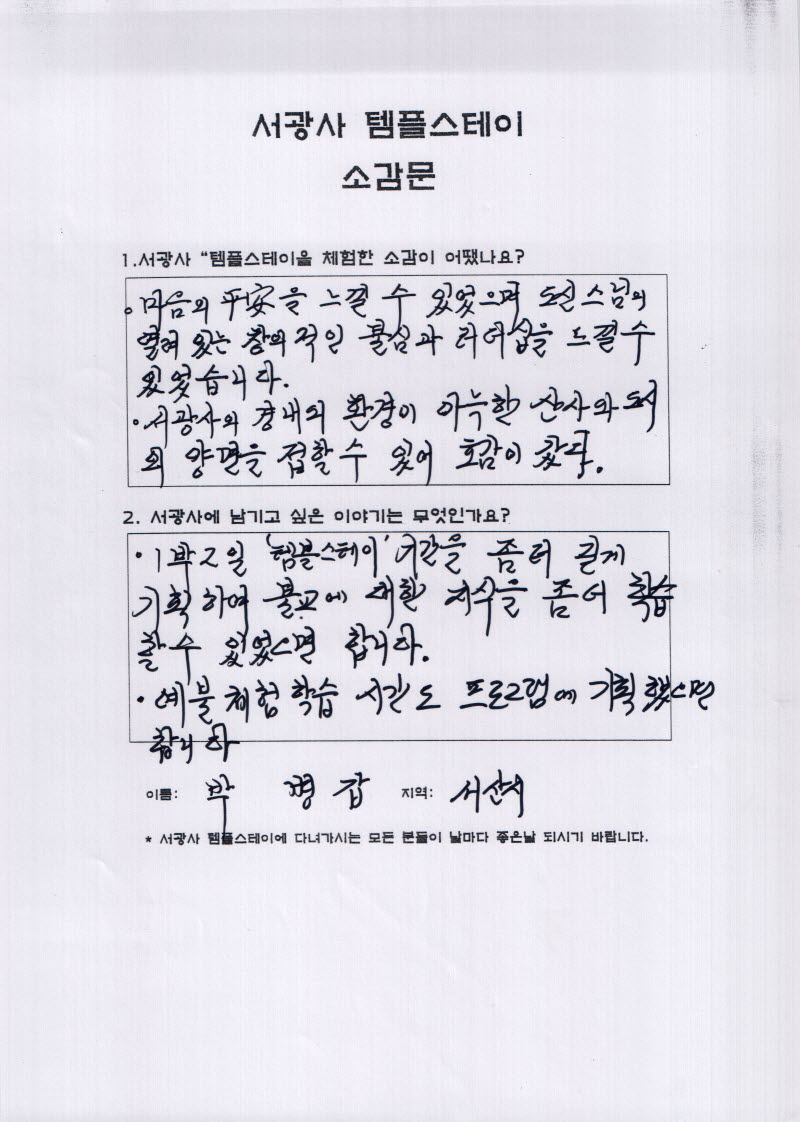 서광사 템플스테이
소감문
1.서광사 “템플스테이을 체험한 소감이 어땠나요?
· 마음의 平安을 느낄 수 있었으며 도신스님의
열려 있는 창의적인 불심과 리더쉽을 느낄 수
있었습니다.
· 서광사의 경내의 환경이 아늑한 산사와 도시
의 양면을 접할 수 있어 호감이 갔다.
2. 서광사에 남기고 싶은 이야기는 무엇인가요?
· 1박 2일 '템블스테이' 기간을 좀 더 길게
기획하여 불교에 대한 지식을 좀 더 학습
할 수 있었으면 합니다.
· 예불 체험학습 시간도 프로그램에 기획했으면
합니다
이름: 박 병 갑 지역: 서산시
* 서광사 템플스테이에 다녀가시는 모든 분들이 날마다 좋은날 되시기 바랍니다.